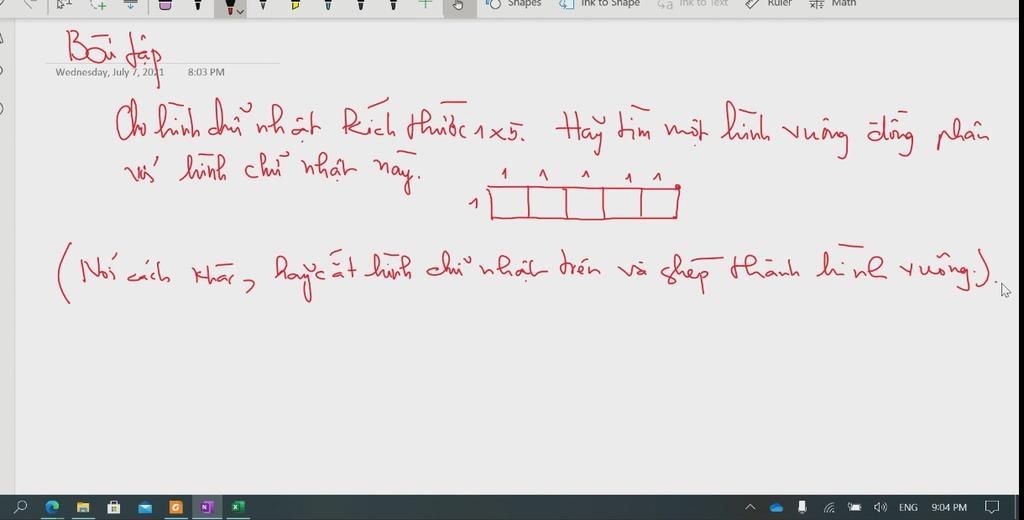 Shapes Ink to Shape Ink to Text Ruler Math
Bài tập
Wednesday, July 7, 2021 8:03 PM
Cho hình chữ nhật kích thước 1x5. Hãy tìm một hình vuông đồng phân
với hình chữ nhật này.
1 1 1 1 1
1
(Nói cách khác, hãy cắt hình chữ nhật trên và ghép thành hình vuông.).
ENG 9:04 PM